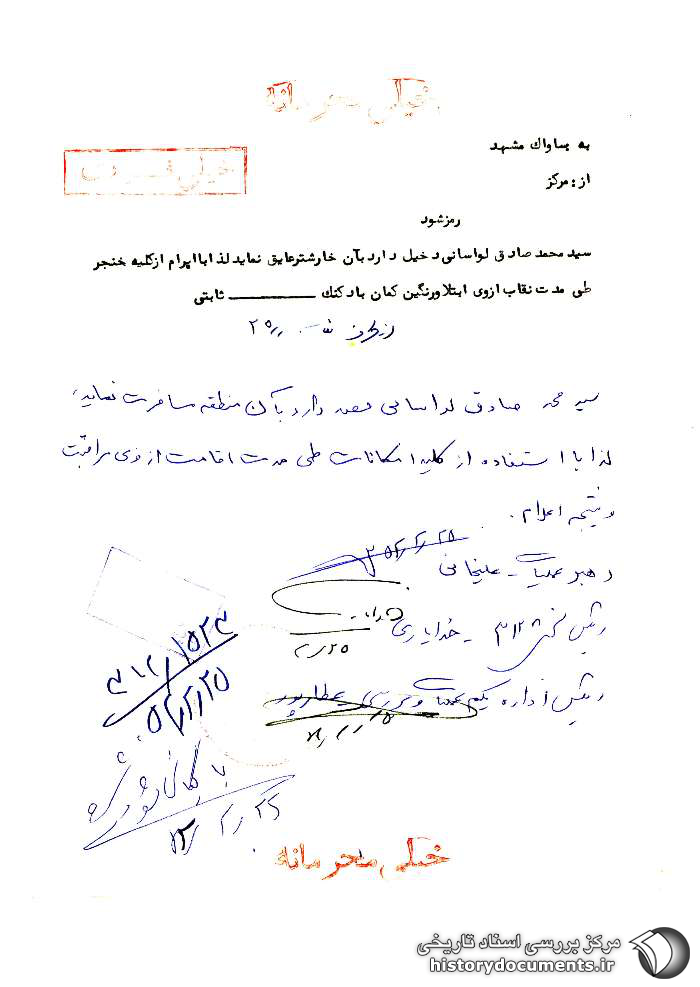 خیلی محرمانه
به ساواك مشهد
از: مركز
خیلی فوری
رمزشود
سید محمد صادق لواسانی دخیل دارد بآن خارشترعایق نماید لذا با ابرام ازكلیه خنجر
طی مدت نقاب ازوی ابتلا ورنگین كمان بادكنك ـــــــــ ثابتی
سید محمد صادق لواسانی قصد دارد بآن منطقه مسافرت نماید،
لذا با استفاده از کلیه امکانات طی مدت اقامت از وی مراقبت
و نتیجه اعلام.
رهبر عملیات - علیخانی
۵۲/۲/۲۵
رئیس بخش ۳۱۲ - خدایاری
۲/۲۵
رئیس اداره یکم عملیات و بررسی - عطارپور
۳۱۲/۱۵۲۳
۵۲/۲/۲۵
بایگانی شود
خیلی محرمانه
مركز بررسی اسناد تاریخی
historydocuments.ir